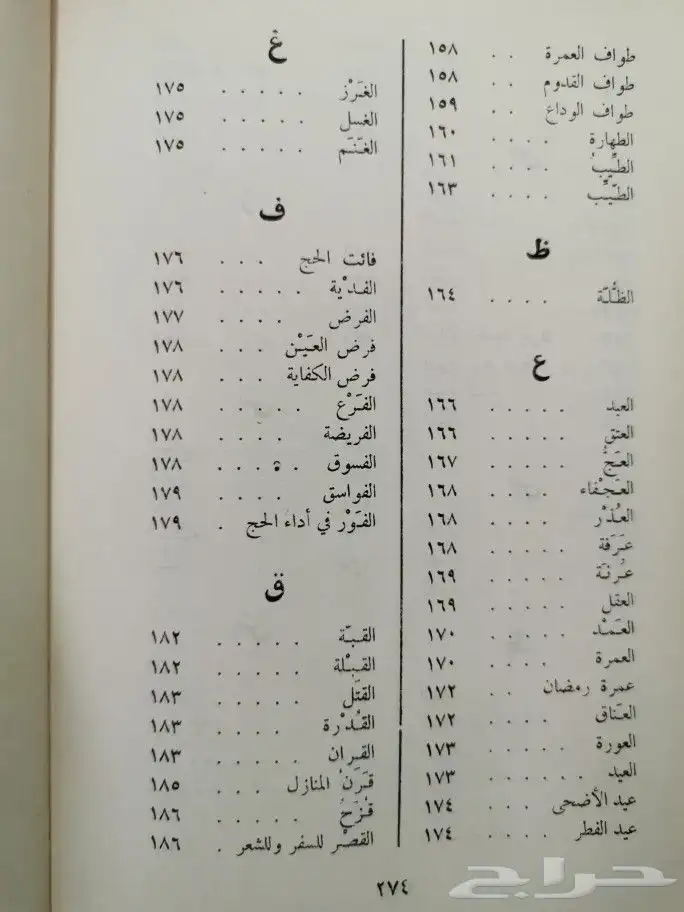 طواف العمرة . . ١٥٨
طواف القدوم . . ١٥٨
طواف الوداع . . ١٥٩
الطهارة . . . . ١٦٠
الطِّيبُ . . . . ١٦١
الطَّيِّب . . . . ١٦٣
ظ
الظُّلّة . . . . ١٦٤
ع
العبد . . . . . ١٦٦
العتق . . . . . ١٦٦
العَجُّ . . . . . ١٦٧
العَجْفاء . . . . ١٦٨
العُذْر . . . . ١٦٨
عَرَفة . . . . . ١٦٨
عُرنَة . . . . . ١٦٩
العقل . . . . . ١٦٩
العَمْد . . . . . ١٧٠
العمرة . . . . ١٧٠
عمرة رمضان . . ١٧٢
العناق . . . . ١٧٢
العورة . . . . ١٧٣
العيد . . . . . . ١٧٣
عيد الأضحى . . ١٧٤
عيد الفطر . . . . ١٧٤
غ
الغَرْز . . . . . ١٧٥
الغسل . . . . . ١٧٥
الغَنَم . . . . . ١٧٥
ف
فائت الحج . . . ١٧٦
الفدْية . . . . . ١٧٦
الفرض . . . . ١٧٧
فرض العَيْن . . . ١٧٨
فرض الكفاية . . . ١٧٨
الفَرْع . . . . . ١٧٨
الفريضة . . . . ١٧٨
الفسوق . . . . ١٧٨
الفواسق . . . . ١٧٩
الفَوْر في أداء الحج . ١٧٩
ق
القبّة . . . . . ١٨٢
القبْلة . . . . . ١٨٢
القتَل . . . . . ١٨٣
القُدْرة . . . . . ١٨٣
القِران . . . . . ١٨٣
قَرَنُ المنازل . . . ١٨٥
قُزَحُ . . . . . ١٨٦
القصْر للسفر وللشعر . ١٨٦
٢٧٤
حراج